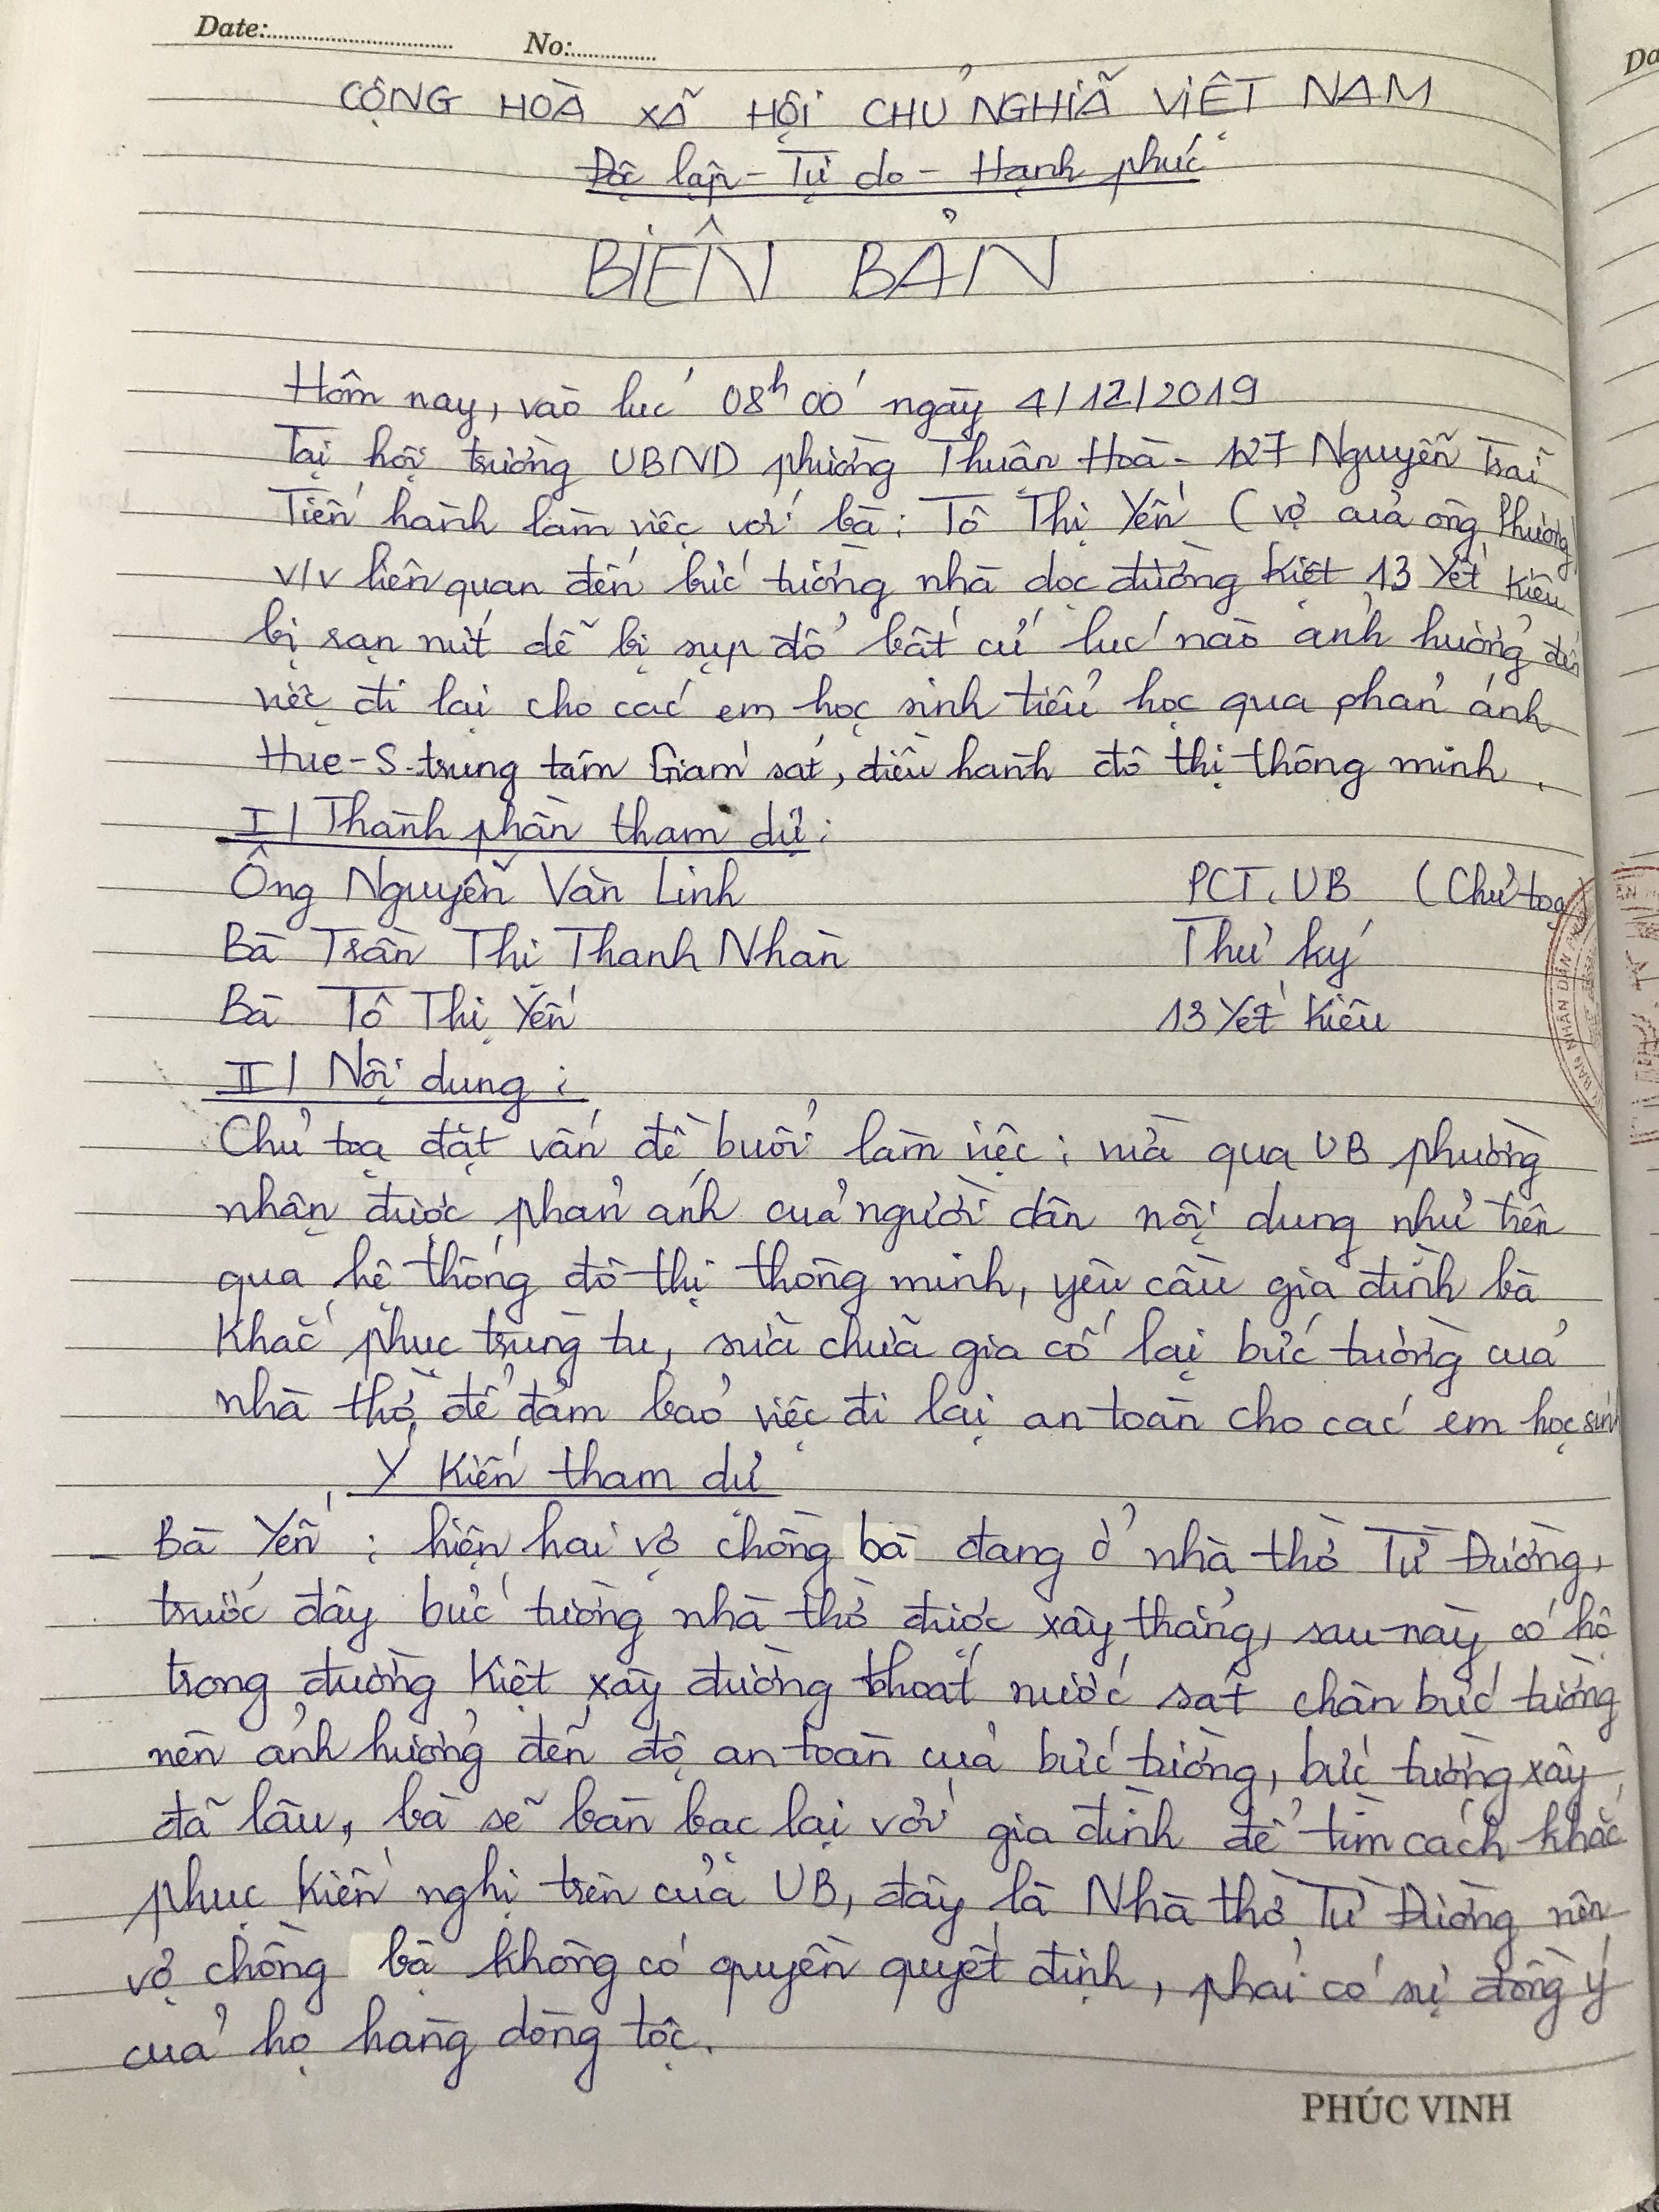 Date:........................... No:..............
CỘNG HOÀ XÃ HỘI CHỦ NGHĨA VIỆT NAM
Độc lập - Tự do - Hạnh phúc
BIÊN BẢN
Hôm nay, vào lúc 08h00' ngày 4/12/2019
Tại hội trường UBND phường Thuận Hoà - 127 Nguyễn Trãi
Tiến hành làm việc với bà: Tô Thị Yến (vợ của ông Phương)
v/v liên quan đến bức tường nhà dọc đường kiệt 13 Yết Kiêu
bị rạn nứt dễ bị sụp đổ bất cứ lúc nào ảnh hưởng đến
việc đi lại cho các em học sinh tiểu học qua phản ánh
Hue-S trung tâm Giám sát, điều hành đô thị thông minh.
I/ Thành phần tham dự:
Ông Nguyễn Văn Linh PCT.UB (Chủ toạ)
Bà Trần Thị Thanh Nhàn Thư ký
Bà Tô Thị Yến 13 Yết Kiêu
II/ Nội dung:
Chủ toạ đặt vấn đề buổi làm việc: vừa qua UB phường
nhận được phản ánh của người dân nội dung như trên
qua hệ thống đô thị thông minh, yêu cầu gia đình bà
khắc phục trùng tu, sửa chữa gia cố lại bức tường của
nhà thờ để đảm bảo việc đi lại an toàn cho các em học sinh
Ý kiến tham dự
- Bà Yến: hiện hai vợ chồng bà đang ở nhà thờ Từ Đường,
trước đây bức tường nhà thờ được xây thẳng, sau này có hộ
trong đường kiệt xây đường thoát nước sát chân bức tường
nên ảnh hưởng đến độ an toàn của bức tường, bức tường xây
đã lâu, bà sẽ bàn bạc lại với gia đình để tìm cách khắc
phục kiến nghị trên của UB, đây là Nhà thờ Từ Đường nên
vợ chồng bà không có quyền quyết định, phải có sự đồng ý
của họ hàng dòng tộc.
PHÚC VINH